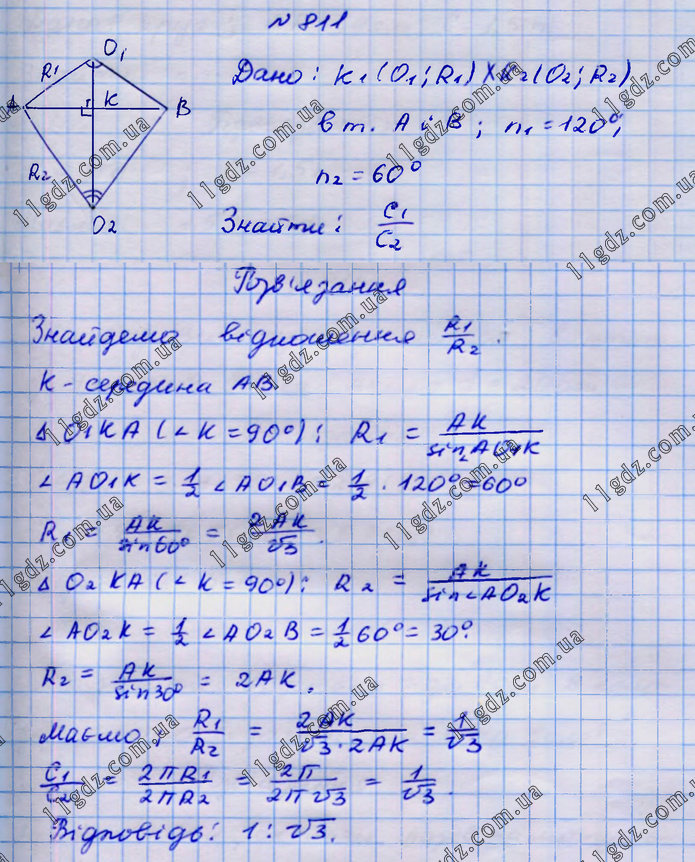 № 811
O1
R1
A
K
B
R2
O2
Дано: K1(O1; R1) X K2(O2; R2)
в т. A і B; n1 = 120°,
n2 = 60°
Знайти: C1/C2
Розв'язання
Знайдемо відношення R1/R2.
K - середина AB.
△ O1KA (∠K = 90°): R1 = AK/sin∠AO1K
∠AO1K = 1/2 ∠AO1B = 1/2 · 120° = 60°
R1 = AK/sin60° = 2AK/√3.
△ O2KA (∠K = 90°): R2 = AK/sin∠AO2K
∠AO2K = 1/2 ∠AO2B = 1/2 60° = 30°.
R2 = AK/sin30° = 2AK.
Маємо, R1/R2 = 2AK/√3·2AK = 1/√3
C1/C2 = 2πR1/2πR2 = 2π/2π√3 = 1/√3.
Відповідь: 1 : √3.
11gdz.com.ua